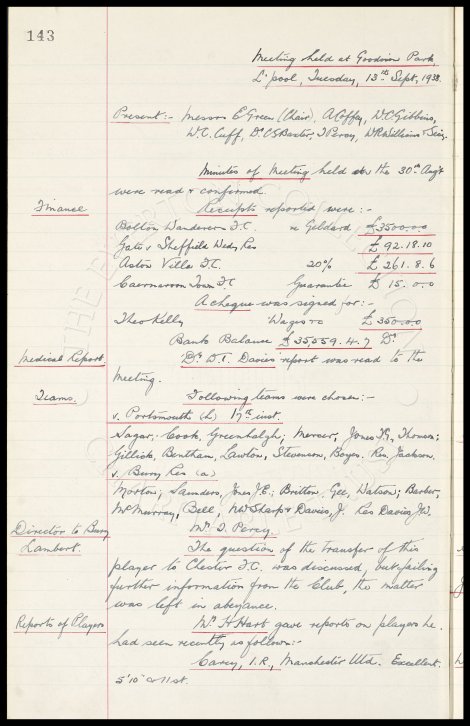 143
Meeting held at Goodison Park,
L'pool, Tuesday, 13th Sept, 1938.
Present:- Messrs E Green (Chair), A Coffey, W.C. Gibbins,
W.C. Cuff, Dr C S Baxter, T Percy, W R Williams & Secy.
Minutes of Meeting held on the 30th Aug't
were read & confirmed.
Finance
Receipts reported were:-
Bolton Wanderers F.C. re Geldard £3500.0.0
Gate v Sheffield Wedy Res £92.18.10
Aston Villa F.C. 20% £261.8.6
Caernarvon Town F.C Guarantee £15.0.0
A cheque was signed for:-
Theo Kelly Wages £350.0.0
Bank Balance £35,559.4.7 Dr.
Medical Report.
Dr. D.T. Davies report was read to the
meeting.
Teams.
Following teams were chosen:-
v. Portsmouth (h) 17th inst.
Sagar; Cook, Greenhalgh; Mercer, Jones T.G., Thomson;
Gillick, Bentham, Lawton, Stevenson, Boyes. Res. Jackson.
v. Bury Res (a)
Morton; Saunders, Jones J.E.; Britton, Gee, Watson; Barber,
McMurray, Bell, N.W. Sharp & Davies, J. Res Davies J.W.
Director to Bury
Mr. T. Percy.
Lambert.
The question of the transfer of this
player to Chester F.C. was discussed, but failing
further information from the Club, the matter
was left in abeyance.
Reports of Players
Mr. H Hart gave reports on players he
had seen recently as follows:-
Carey, J.R., Manchester Utd. Excellent.
5'10" 11st.